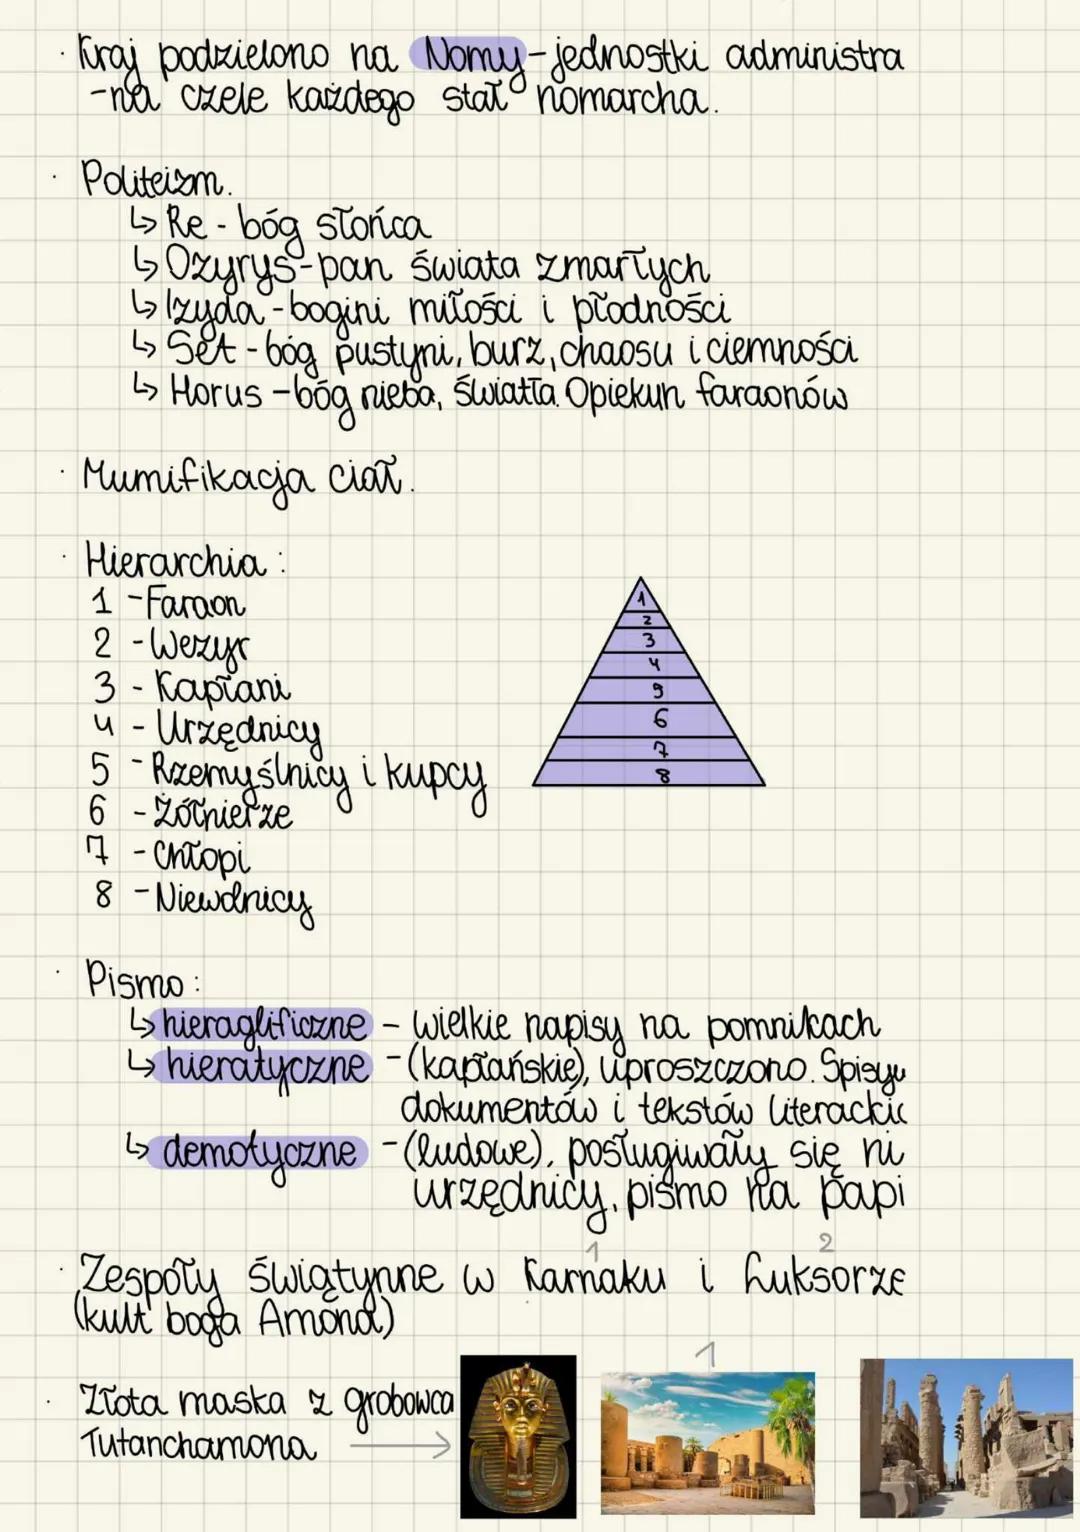 · Kraj podzielono na Nomy-jednostki administra
-na czele każdego stał nomarcha.
· Politeizm.
↳ Re - bóg słońca
↳ Ozyrys-pan świata zmarłych
↳ Izyda -bogini miłości i płodności
↳ Set - bóg pustyni, burz, chaosu i ciemności
↳ Horus -bóg nieba, światła. Opiekun faraonów
· Mumifikacja ciał.
· Hierarchia :
1 -Faraon
2 -Wezyr
3 - Kapłani
4 - Urzędnicy
5 -Rzemyślnicy i kupcy
6 -Żołnierze
7 -Chłopi
8 -Niewolnicy
1
2
3
4
5
6
7
8
· Pismo :
↳ hieraglificzne - wielkie napisy na pomnikach
↳ hieratyczne -(kapłańskie), uproszczono. Spisyw
dokumentów i tekstów literackic
↳ demotyczne -(ludowe), posługiwały się ni
urzędnicy, pismo na papi
1 2
· Zespoły świątynne w Karnaku i Luksorze
(kult boga Amona)
1
· Złota maska z grobowca
Tutanchamona →